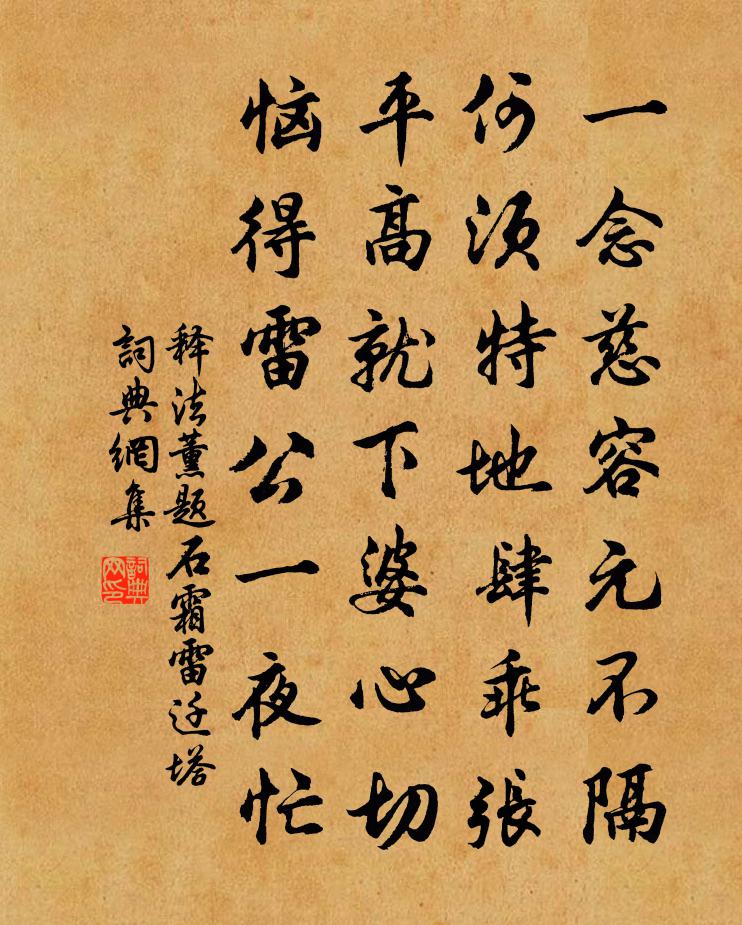 一念慈容元不隔
何须特地肆乖張
平高就下婆心切
恼得雷公一夜忙
释法薰题石霜雷迁塔
詞典網集
詞典
网印